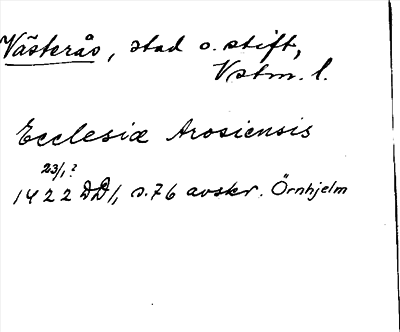 Västerås, stad o. stift,
Vstm. l.
Ecclesiæ Arosiensis
23/1?
1422 DD1, s.76 avskr. Örnhjelm